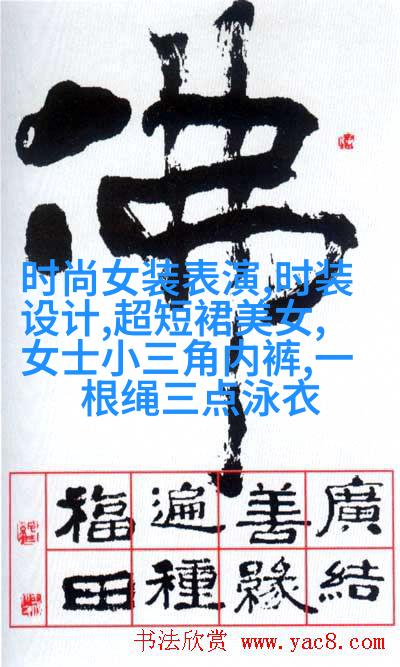 佛
时尚女装表演,时装
设计,超短裙美女,
女士小三角内裤,一
根绳三点泳衣
廣結
善緣
遍種
福田
书法欣赏 www.yac8.com